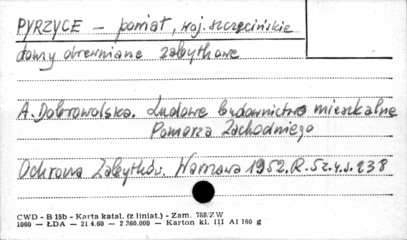 PYRZYCE – powiat, woj. szczecińskie
domy drewniane zabytkowe
A. Dobrowolska. Ludowe budownictwo mieszkalne
Pomorza Zachodniego
Ochrona Zabytków. Warszawa 1952. R. 5 z. 4. s. 238
CWD - B 15b - Karta katal. (z liniat.) - Zam. 788/ZW
1060 — ŁDA — 21 4.60 — 2.360.000 — Karton kl. III A1 160 g